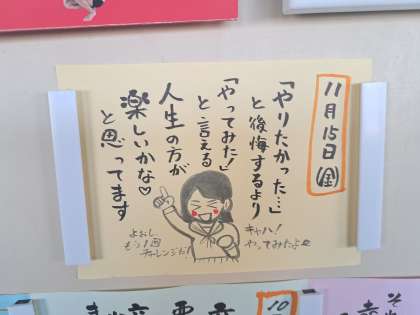 11月15日(金)
「やりたかった…」
と後悔するより
「やってみた!」
と言える
人生の方が
楽しいかな♡
と思ってます
キャハ!
やってみたよ
よおし
もう1回
チャレンジだ!
10